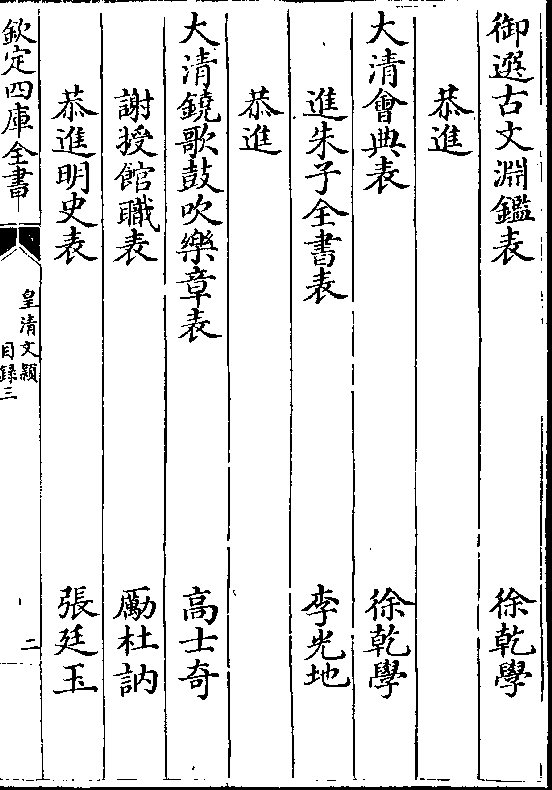 御選古文淵鑑表 徐乾學
恭進
大清會典表 徐乾學
進朱子全書表 李光地
恭進
大清鐃歌鼓吹樂章表 高士奇
謝授館職表 勵杜訥
恭進明史表 張廷玉
欽定四庫全書
皇清文穎
目錄三
二